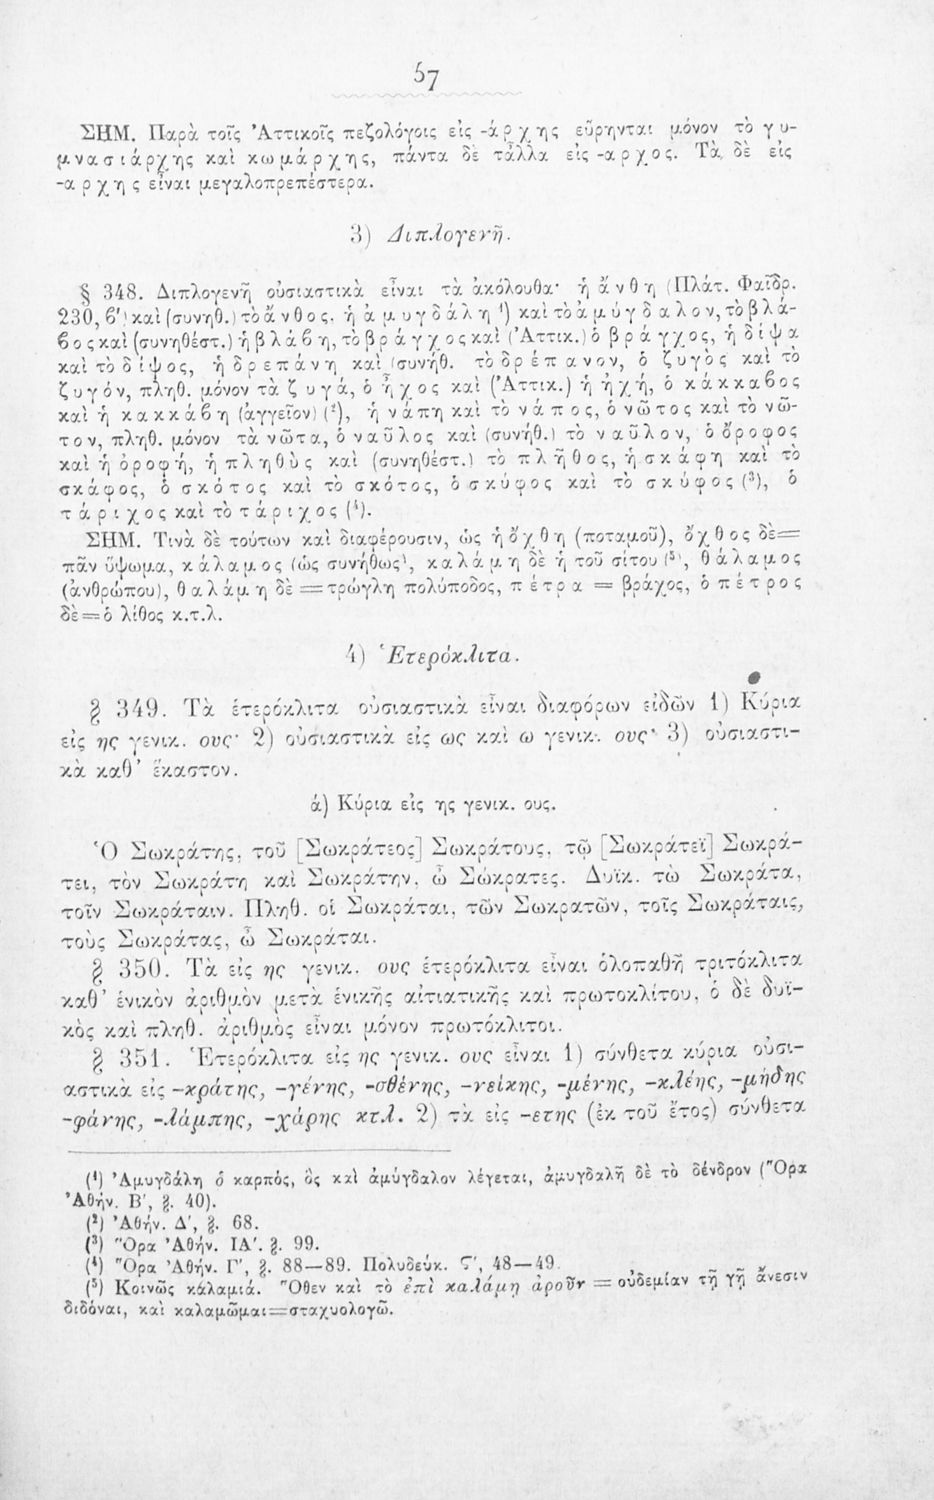 57
ΣΗΜ. Παρὰ τοῖς Ἀττικοῖς πεζολόγοις εἰς -άρχης εὕρηνται μόνον τὸ γυ-
μνασιάρχης καὶ κωμάρχης, πάντα δὲ τἆλλα εἰς -αρχος. Τὰ δὲ εἰς
-αρχης εἶναι μεγαλοπρεπέστερα.
3) Διπλογενῆ.
§ 348. Διπλογενῆ οὐσιαστικὰ εἶναι τὰ ἀκόλουθα· ἡ ἄνθη (Πλάτ. Φαῖδρ.
230, β′) καὶ (συνηθ.) τὸ ἄνθος, ἡ ἀμυγδάλη ¹) καὶ τὸ ἀμύγδαλον, τὸ βλά-
βος καὶ (συνηθέστ.) ἡ βλάβη, τὸ βράγχος καὶ (Ἀττικ.) ὁ βράγχος, ἡ δίψα
καὶ τὸ δίψος, ἡ δρεπάνη καὶ (συνήθ. τὸ δρέπανον, ὁ ζυγὸς καὶ τὸ
ζυγόν, πληθ. μόνον τὰ ζυγά, ὁ ἦχος καὶ (Ἀττικ.) ἡ ἠχή, ὁ κάκκαβος
καὶ ἡ κακκάβη (ἀγγεῖον) (²), ἡ νάπη καὶ τὸ νάπος, ὁ νῶτος καὶ τὸ νῶ-
τον, πληθ. μόνον τὰ νῶτα, ὁ ναῦλος καὶ (συνήθ.) τὸ ναῦλον, ὁ ὄροφος
καὶ ἡ ὀροφή, ἡ πληθὺς καὶ (συνηθέστ.) τὸ πλῆθος, ἡ σκάφη καὶ τὸ
σκάφος, ὁ σκότος καὶ τὸ σκότος, ὁ σκύφος καὶ τὸ σκύφος (³), ὁ
τάριχος καὶ τὸ τάριχος (⁴).
ΣΗΜ. Τινὰ δὲ τούτων καὶ διαφέρουσιν, ὡς ἡ ὄχθη (ποταμοῦ), ὄχθος δὲ=
πᾶν ὕψωμα, κάλαμος (ὡς συνήθως), καλάμη δὲ ἡ τοῦ σίτου (⁵), θάλαμος
(ἀνθρώπου), θαλάμη δὲ = τρώγλη πολύποδος, πέτρα = βράχος, ὁ πέτρος
δὲ=ὁ λίθος κ.τ.λ.
4) Ἑτερόκλιτα.
§ 349. Τὰ ἑτερόκλιτα οὐσιαστικὰ εἶναι διαφόρων εἰδῶν 1) Κύρια
εἰς ης γενικ. ους· 2) οὐσιαστικὰ εἰς ως καὶ ω γενικ. ους· 3) οὐσιαστι-
κὰ καθ' ἕκαστον.
ά) Κύρια εἰς ης γενικ. ους.
Ὁ Σωκράτης, τοῦ [Σωκράτεος] Σωκράτους, τῷ [Σωκράτεϊ] Σωκρά-
τει, τὸν Σωκράτη καὶ Σωκράτην, ὦ Σώκρατες. Δυϊκ. τὼ Σωκράτα,
τοῖν Σωκράταιν. Πληθ. οἱ Σωκράται, τῶν Σωκρατῶν, τοῖς Σωκράταις,
τοὺς Σωκράτας, ὦ Σωκράται.
§ 350. Τὰ εἰς ης γενικ. ους ἑτερόκλιτα εἶναι ὁλοπαθῆ τριτόκλιτα
καθ' ἑνικὸν ἀριθμὸν μετὰ ἑνικῆς αἰτιατικῆς καὶ πρωτοκλίτου, ὁ δὲ δυϊ-
κὸς καὶ πληθ. ἀριθμὸς εἶναι μόνον πρωτόκλιτοι.
§ 351. Ἑτερόκλιτα εἰς ης γενικ. ους εἶναι 1) σύνθετα κύρια οὐσι-
αστικὰ εἰς -κράτης, -γένης, -σθένης, -νείκης, -μένης, -κλέης, -μήδης
-φάνης, -λάμπης, -χάρης κτλ. 2) τὰ εἰς -ετης (ἐκ τοῦ ἔτος) σύνθετα
(¹) Ἀμυγδάλη ὁ καρπός, ὃς καὶ ἀμύγδαλον λέγεται, ἀμυγδαλῆ δὲ τὸ δένδρον (Ὅρα
Ἀθήν. Β′, §. 40).
(²) Ἀθήν. Δ′, §. 68.
(³) Ὅρα Ἀθήν. ΙΑ′. §. 99.
(⁴) Ὅρα Ἀθήν. Γ′, §. 88—89. Πολυδεύκ. Ϛ′, 48—49.
(⁵) Κοινῶς κάλαμιά. Ὅθεν καὶ τὸ ἐπὶ καλάμῃ ἀροῦν = οὐδεμίαν τῇ γῇ ἄνεσιν
διδόναι, καὶ καλαμῶμαι=σταχυολογῶ.